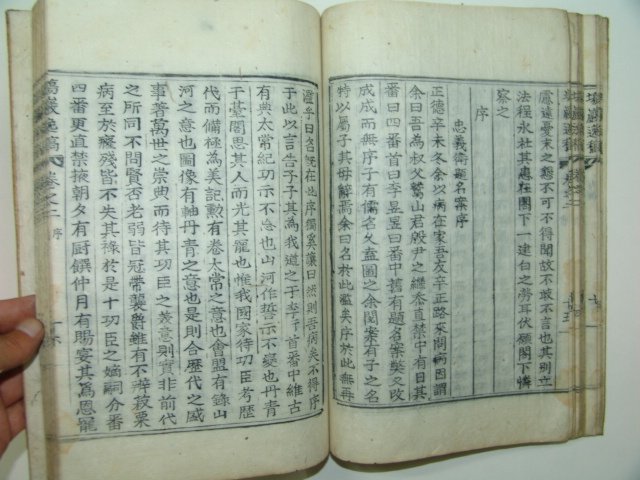 慮遠憂末之懇不可不得聞故不敢不言也其別立
法程永杜其患在閤下一建白之勞耳伏願閤下憐
察之
序
忠義衛題名案序
正德辛未冬余以病在家吾友辛正路來問病因謂
余曰吾為叔父鷲山君殷尹之繼忝直禁中有日其
番曰四番首曰李昱昱曰番中舊有題名案獘又改
成成而無序子有儒名久盍圖之余閱案有子之名
特以屬子其毋辭焉余曰名於此濫矣序於此無再
濫乎曰名旣在此序獨奚讓曰然則吾病矣不得序
於此以言告子子其為我道之于李丁首番中維古
有典太常紀功示不泯也山河作誓示不變也丹青
于臺閣思其人而光其寵也惟我國家待功臣考歷
代而備極為美記勲有卷太常之意也會盟有錄山
河之意也圖像有軸丹青之意也是則合歷代之威
事著萬世之崇典而待其功臣之義意則實非前代
之所同不問賢否老弱皆冠帶襲爵雖有不辨菽粟
病至於癈殘皆不失其祿於是十功臣之嫡嗣分番
四番更直禁掖朝夕有厨饌仲月有賜宴其為恩寵
葛巖逸稿 卷之二 序